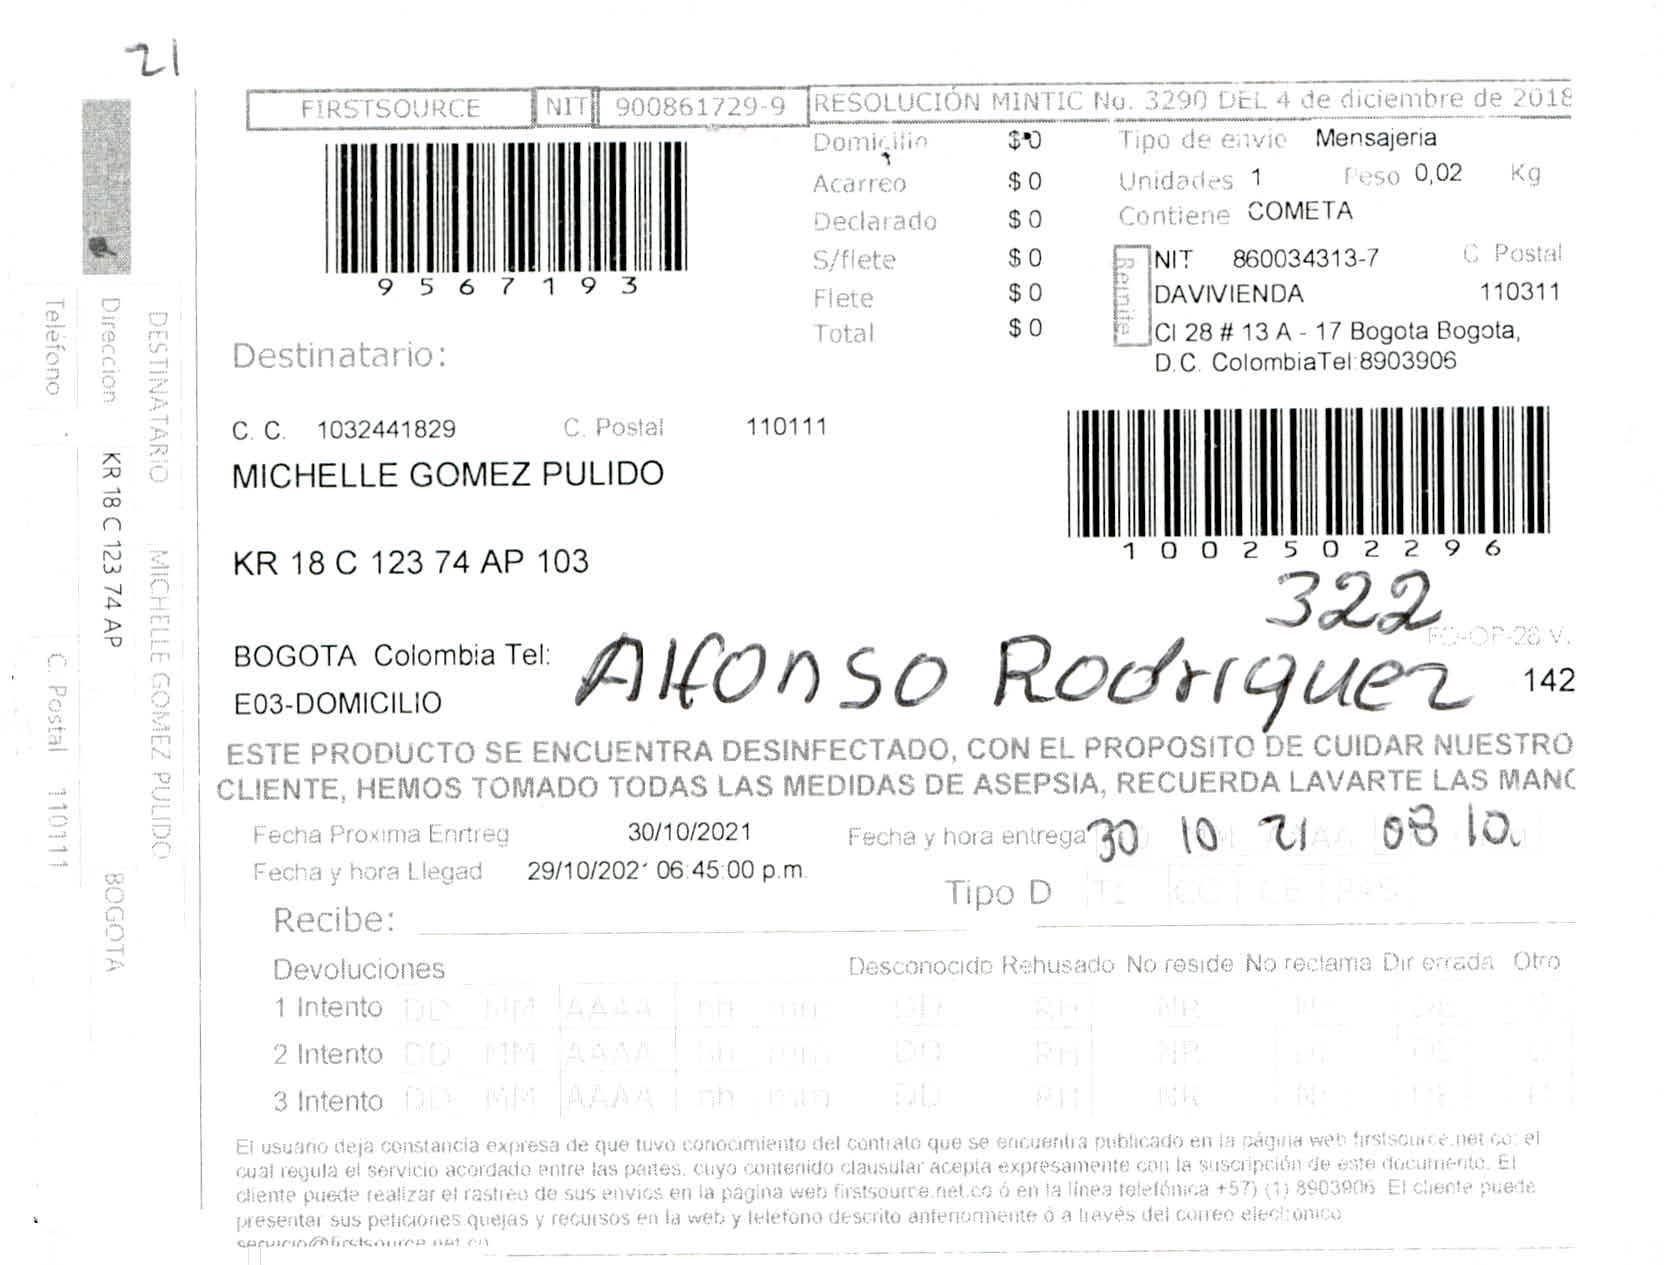 21
FIRSTSOURCE NIT 900861729-9 RESOLUCIÓN MINTIC No. 3290 DEL 4 de diciembre de 2018
9567193
Domicilio $ 0
Acarreo $ 0
Declarado $ 0
S/flete $ 0
Flete $ 0
Total $ 0
Tipo de envio Mensajeria
Unidades 1 Peso 0,02 Kg
Contiene COMETA
Remite
NIT 860034313-7 C Postal
DAVIVIENDA 110311
Cl 28 # 13 A - 17 Bogota Bogota,
D.C. ColombiaTel:8903906
Destinatario:
C. C. 1032441829 C. Postal 110111
MICHELLE GOMEZ PULIDO
1002502296
KR 18 C 123 74 AP 103
322
FO-OP-28 V.
BOGOTA Colombia Tel:
Alfonso Rodriguez
142
E03-DOMICILIO
ESTE PRODUCTO SE ENCUENTRA DESINFECTADO, CON EL PROPOSITO DE CUIDAR NUESTRO
CLIENTE, HEMOS TOMADO TODAS LAS MEDIDAS DE ASEPSIA, RECUERDA LAVARTE LAS MANC
Fecha Proxima Enrtreg 30/10/2021 Fecha y hora entrega 30 10 21 08 10
Fecha y hora Llegad 29/10/2021 06:45:00 p.m.
Tipo D T1 CC CE PAS
Recibe:
Devoluciones Desconocido Rehusado No reside No reclama Dir errada Otro
1 Intento DD MM AAAA hh mm DD RH NR
2 Intento DD MM AAAA hh mm DD RH NR
3 Intento DD MM AAAA hh mm DD RH NR
El usuario deja constancia expresa de que tuvo conocimiento del contrato que se encuentra publicado en la página web firstsource.net.co; el
cual regula el servicio acordado entre las partes, cuyo contenido clausular acepta expresamente con la suscripción de este documento. El
cliente puede realizar el rastreo de sus envios en la página web firstsource.net.co ó en la línea telefónica +57) (1) 8903906 El cliente puede
presentar sus peticiones quejas y recursos en la web y telefono descrito anteriormente ó a través del correo electronico
servicio@firstsource.net.co
DESTINATARIO MICHELLE GOMEZ PULIDO
Direccion KR 18 C 123 74 AP BOGOTA
Teléfono C. Postal 110111